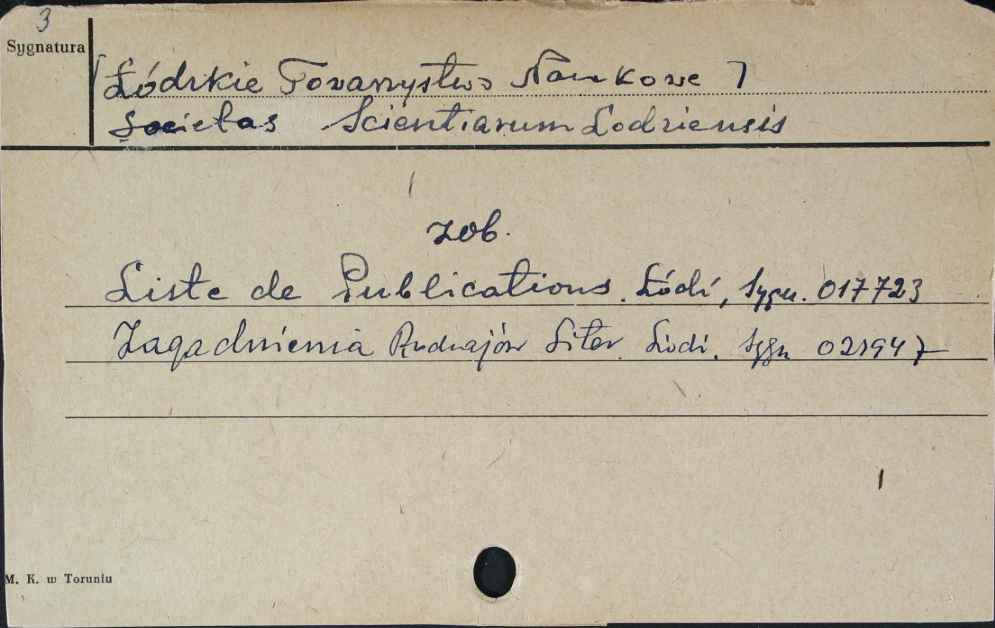 3
Sygnatura
[Łódzkie Towarzystwo Naukowe]
Societas Scientiarum Lodziensis
zob.
Liste de Publications. Łódź, Sygn. 017723
Zagadnienia Rodzajów Liter. Łódź. Sygn 021947
M. K. w Toruniu